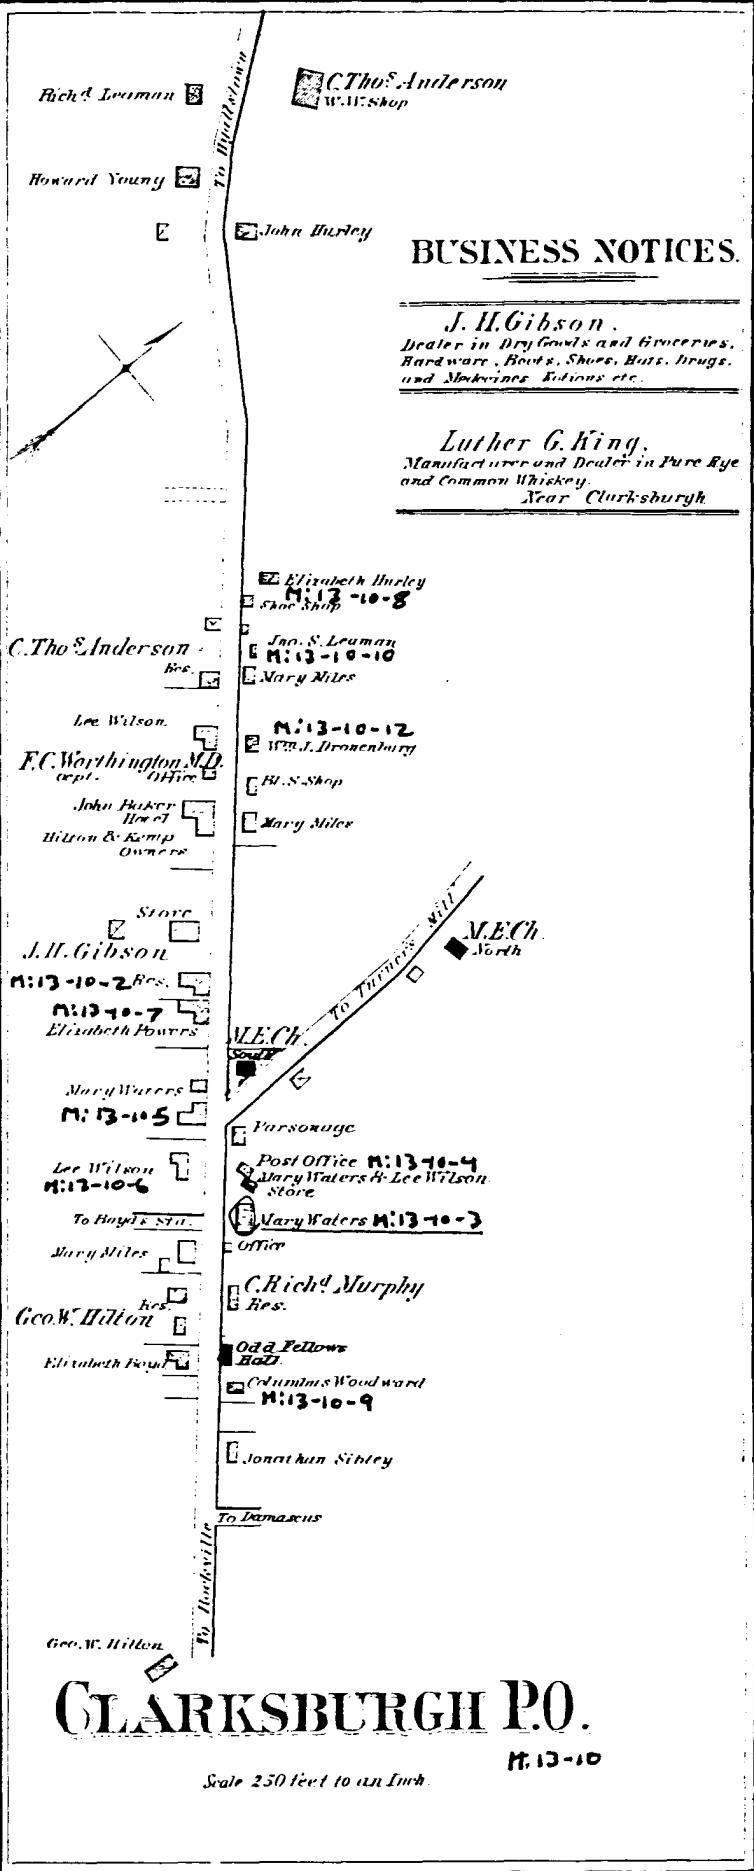 Rich.d Leaman
C. Tho.s Anderson
W.W. Shop
To Hyattstown
Howard Young
John Hurley
BUSINESS NOTICES.
J. H. Gibson.
Dealer in Dry Goods and Groceries,
Hardware, Boots, Shoes, Hats, Drugs,
and Medecines Notions etc.
Luther G. King,
Manufacturer and Dealer in Pure Rye
and Common Whiskey.
Near Clarksburgh
Elizabeth Hurley
M:13-10-8
Shoe Shop
C. Tho.s Anderson
Res.
Jno. S. Leaman
M:13-10-10
Mary Miles
Lee Wilson
M:13-10-12
Wm. J. Dronenburg
F.C. Worthington M.D.
Office
Bl. S. Shop
John Baker
Hotel
Hilton & Kemp
Owners
Mary Miles
Store
J. H. Gibson
M:13-10-2 Res.
M:13-10-7
Elizabeth Powers
To Turners Mill
M.E.Ch.
North
M.E.Ch.
South
Mary Waters
M:13-10-5
Parsonage
Lee Wilson
M:13-10-6
Post Office M:13-10-4
Mary Waters & Lee Wilson
Store
To Boyds Sta.
Mary Waters M:13-10-3
Mary Miles
Office
Res.
Geo. W. Hilton
C. Rich.d Murphy
Res.
Elizabeth Boyd
Odd Fellows
Hall
Columbus Woodward
M:13-10-9
Jonathan Sibley
To Damascus
To Rockville
Geo. W. Hilton
CLARKSBURGH P.O.
M:13-10
Scale 250 feet to an Inch.